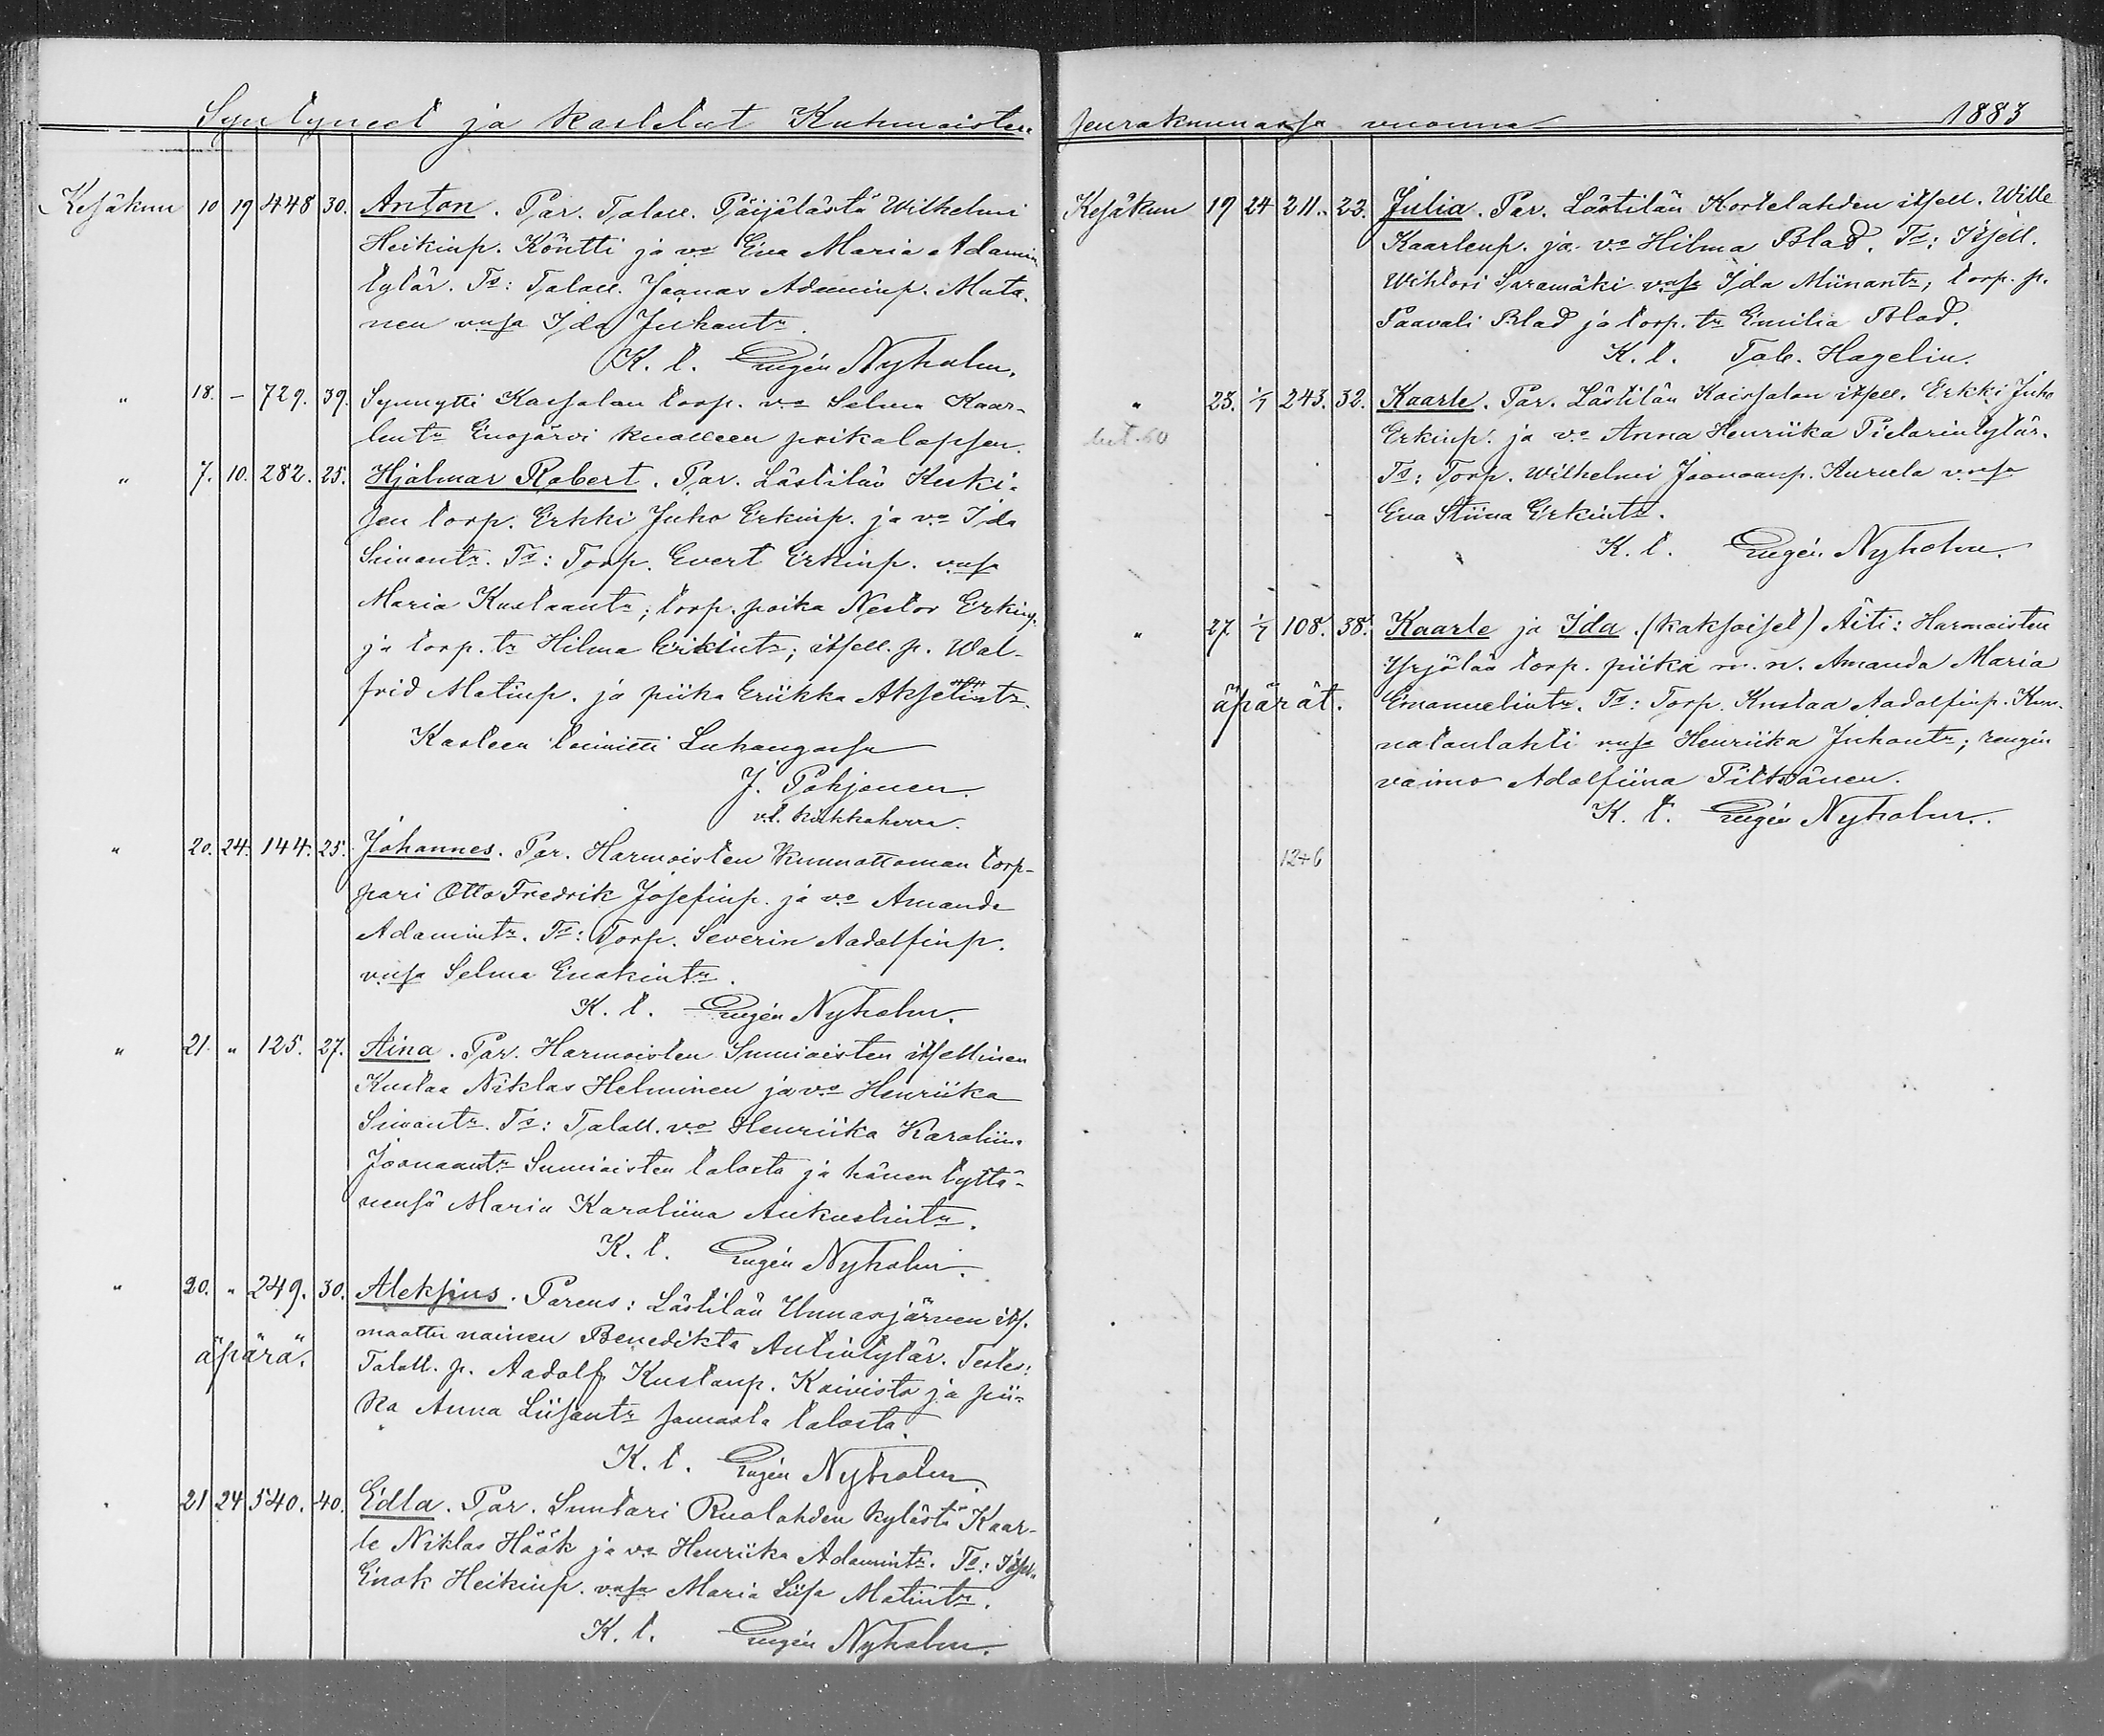 Syntyneet ja kastetut Kuhmoisten
Kesäkuu 10 19 448 30. Anton. Par. Talall. Päijälästä Wilhelmi
Heikinp. Köntti ja vo Eva Maria Adamin
tytär. Ts: Talall. Joonas Adaminp. Mata-
nen vnsa Ida Juhantr.
K. t. Eugén Nyholm.
" 18. – 729. 39. Synnytti Kaisalan torp. vo Selma Kaar-
lentr Enojärvi kuolleen poikalapsen.
" 7. 10. 282. 25. Hjalmar Robert. Par. Lästilän Keski-
sen torp. Erkki Juho Erkinp. ja vo Ida
Simontr. Ts: Torp. Evert Erkinp. vnsa
Maria Kustaantr; torp. poika Nestor Erkinp.
ja torp. tr Hilma Erikintr; itsell. p. Wal-
frid Matinp. ja piika Eriikka Akselintr.
Kasteen toimitti Luhangassa
J. Pohjonen.
v.t. kirkkoherra.
" 20. 24. 144. 25. Johannes. Par. Harmoisten Kunnottoman torp-
pari Otto Fredrik Josefinp. ja vo Amanda
Adamintr. Ts: Torp. Severin Aadolfinp.
vnsa Selma Enokintr.
K. t. Eugén Nyholm.
" 21. " 125. 27. Aina. Par. Harmoisten Sunioisten itsellinen
Kustaa Niklas Helminen ja vo Henriika
Simontr. Ts: Talall. vo Henriika Karoliina
Joonaantr Sunioisten talosta ja hänen tyttä-
rensä Maria Karoliina Aukustintr.
K. t. Eugén Nyholm.
" 20. " 249. 30. Aleksius. Parens: Lästilän Unnasjärven its.
äpärä. maattu nainen Benedikta Antintytär. Testes:
Talall. p. Aadolf Kustaanp. Koivisto ja pii-
ka Anna Liisantr samasta talosta.
K. t. Eugén Nyholm.
" 21 24 540. 40. Edla. Par. Suntari Ruolahden kylästä Kaar-
le Niklas Höök ja vo Henriika Adamintr. Ts: Itsell.
Enok Heikinp. vnsa Maria Liisa Matintr.
K. t. Eugén Nyholm.
seurakunnassa vuonna 1883
Kesäkuu 19 24 211. 22. Julia. Par. Lästilän Kortelahden itsell. Wille
Kaarlenp. ja vo Hilma Blad. Ts: Itsell.
Wihtori Saramäki vnsa Ida Miinantr, torp. p.
Paavali Blad ja torp. tr Emilia Blad.
K. t. Tab. Hagelin.
" 23. 1/7 243. 32. Kaarle. Par. Lästilän Kaisalan itsell. Erkki Juho
Erkinp. ja vo Anna Henriika Pietarintytär.
Ts: Torp. Wilhelmi Joonaanp. Aurela vnsa
Eva Stiina Erkintr.
K. t. Eugén Nyholm.
" 27. 1/7 108. 38. Kaarle ja Ida. (kaksoiset) Äiti: Harmoisten
Yrjölän torp. piika m. n. Amanda Maria
äpärät. Emanuelintr. Ts: Torp. Kustaa Aadolfinp. Kun-
natonlahti vnsa Henriika Juhontr; rengin
vaimo Adolfiina Piltvänen.
K. t. Eugén Nyholm.
12+6